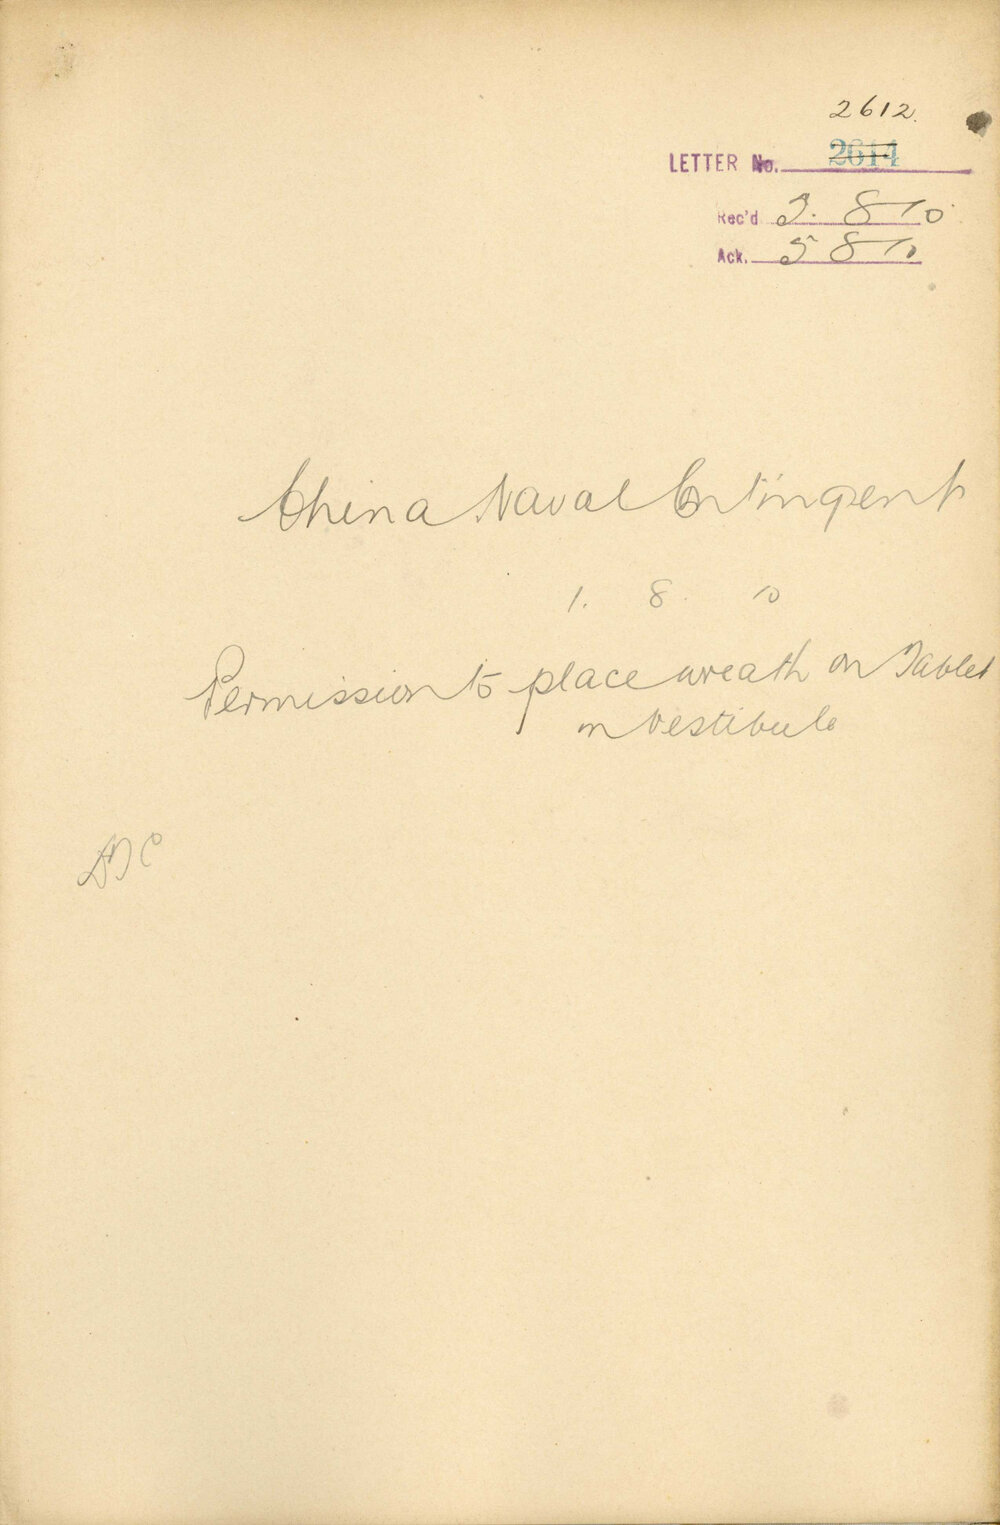 2612.
LETTER No. 2614
Rec'd 3. 8 10
Ack. 5 8 10
China Naval Contingent
1. 8. 10
Permission to place wreath on Tablet
in Vestibule